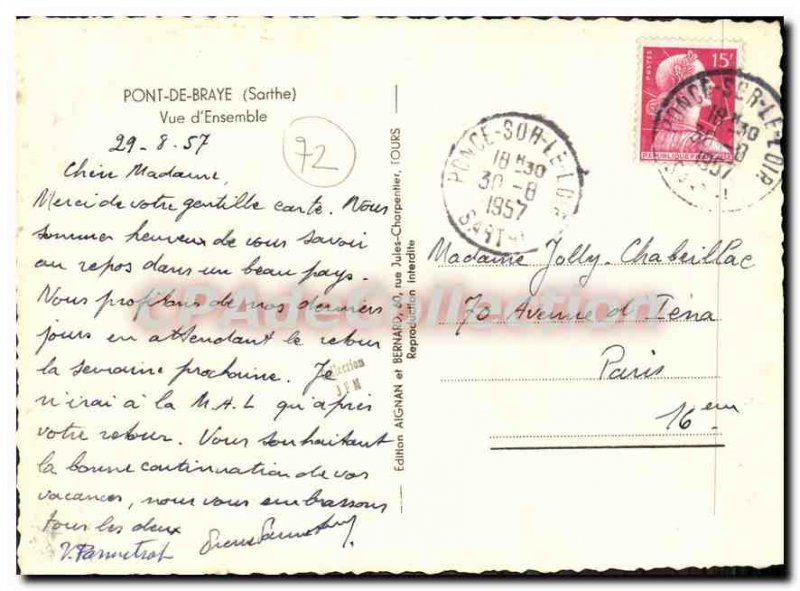 PONT-DE-BRAYE (Sarthe)
Vue d'Ensemble
29-8-57
72
Chère Madame,
Merci de votre gentille carte. Nous
sommes heureux de vous savoir
au repos dans un beau pays.
Nous profitons de nos derniers
jours en attendant le retour
la semaine prochaine. Je
n'irai à la M.A.L qu'après
votre retour. Vous souhaitant
la bonne continuation de vos
vacances, nous vous embrassons
tous les deux
V. Pannetrat
Edition AIGNAN et BERNARD, rue Jules-Charpentier, TOURS
Reproduction interdite
CPADeCollection
Collection
J F M
PONCE-SUR-LE-LOIR
18 H30
30-8
1957
SARTHE
POSTES
15F
REPUBLIQUE FRANÇAISE
PONCE-SUR-LE-LOIR
18 H30
30-8
1957
Madame Jolly-Chabeillac
70 Avenue d'Iéna
Paris
16em